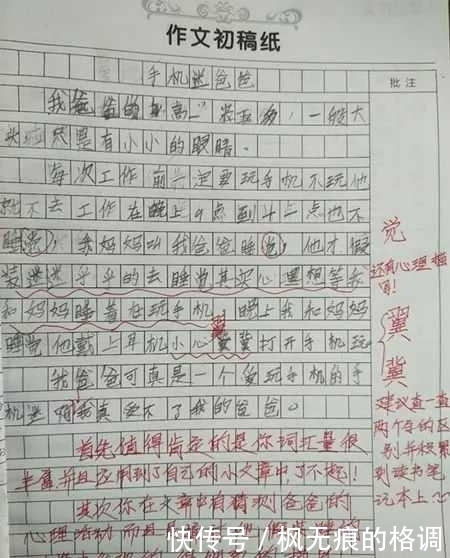 作文初稿纸
手机迷爸爸
批注
我爸爸的身高一米五多,一般大
头啦只是有小小的眼睛。
每次工作前一定要玩手机不玩他
就不去工作在晚上9点到十二点也不
睡觉,我妈妈叫我爸爸睡觉,他才假
装迷迷乎乎的去睡觉其实心里想等我
和妈妈睡着在玩手机。晚上我和妈妈
睡觉他戴上耳机小心翼冀打开手机玩
我爸爸可真是一个爱玩手机的手
机迷啊我真受不了我的爸爸。
觉
还有心理描写!
翼
冀
建议查一查
两个字的区
别并积累
到读书笔
记本上
首先值得肯定的是你词汇量很
丰富并且应用到了自己的小文章中了不起!
其次你在文章中有猜测爸爸的
心理活动而且
快传号/枫无痕的格调